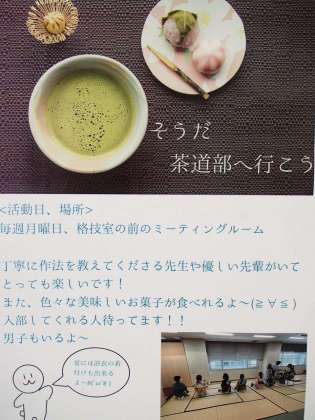 そうだ
茶道部へ行こう
<活動日、場所>
毎週月曜日、格技室の前のミーティングルーム
丁寧に作法を教えてくださる先生や優しい先輩がいて
とっても楽しいです！
また、色々な美味しいお菓子が食べれるよ〜(≧∀≦)
入部してくれる人待ってます！！
男子もいるよ〜
夏には浴衣の着
付けも出来る
よ〜